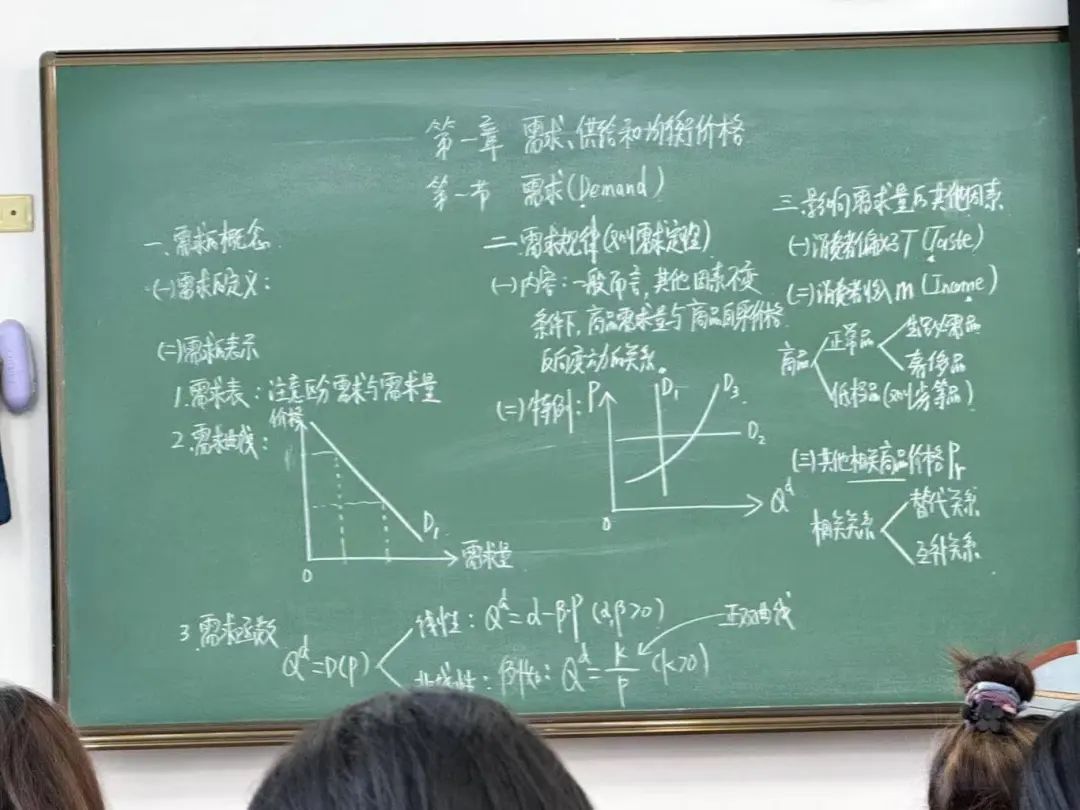 第一章 需求、供给和均衡价格
第一节 需求(Demand)
一、需求的概念
(一)需求的定义:
(二)需求的表示
1.需求表:注意区分需求与需求量
2.需求曲线:
价格
D₁
0
需求量
3.需求函数
Qᵈ=D(P)
线性:Qᵈ=α-β·P (α,β>0)
非线性:例如:Qᵈ=K/P (K>0)
正双曲线
二、需求规律(又叫需求定律)
(一)内容:一般而言,其他因素不变
条件下,商品需求量与商品自身价格
反向变动的关系。
(二)特例:
P
D₁
D₃
D₂
0
Qᵈ
三、影响需求量的其他因素
(一)消费者偏好T(Taste)
(二)消费者收入m(Income)
商品
正常品
生活必需品
奢侈品
低档品(又叫劣等品)
(三)其他相关商品价格Pr
相关关系
替代关系
互补关系